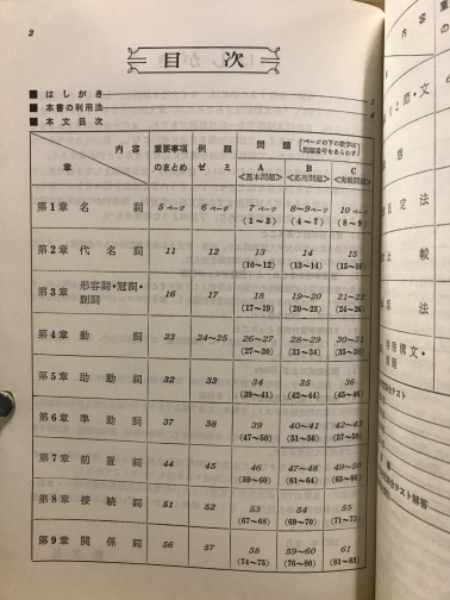 2
目次
■ はしがき 1
■ 本書の利用法 4
■ 本文目次
内容 重要事項 例題 問題 (ページの下の数字は
問題番号をあらわす)
章 のまとめ ゼミ A B C
<基本問題> <応用問題> <実戦問題>
第1章 名詞 5ページ 6ページ 7ページ 8〜9ページ 10ページ
(1〜3) (4〜7) (8〜9)
第2章 代名詞 11 12 13 14 15
(10〜12) (13〜14) (15〜16)
第3章 形容詞・冠詞・
副詞 16 17 18 19〜20 21〜22
(17〜19) (20〜23) (24〜26)
第4章 動詞 23 24〜25 26〜27 28〜29 30〜31
(27〜30) (31〜34) (35〜38)
第5章 助動詞 32 33 34 35 36
(39〜41) (42〜44) (45〜46)
第6章 準動詞 37 38 39 40〜41 42〜43
(47〜50) (51〜56) (57〜58)
第7章 前置詞 44 45 46 47〜48 49〜50
(59〜60) (61〜64) (65〜66)
第8章 接続詞 51 52 53 54 55
(67〜68) (69〜70) (71〜73)
第9章 関係詞 56 57 58 59〜60 61
(74〜75) (76〜80) (81〜83)
内容
文
態
仮定法
比較
法
構文・